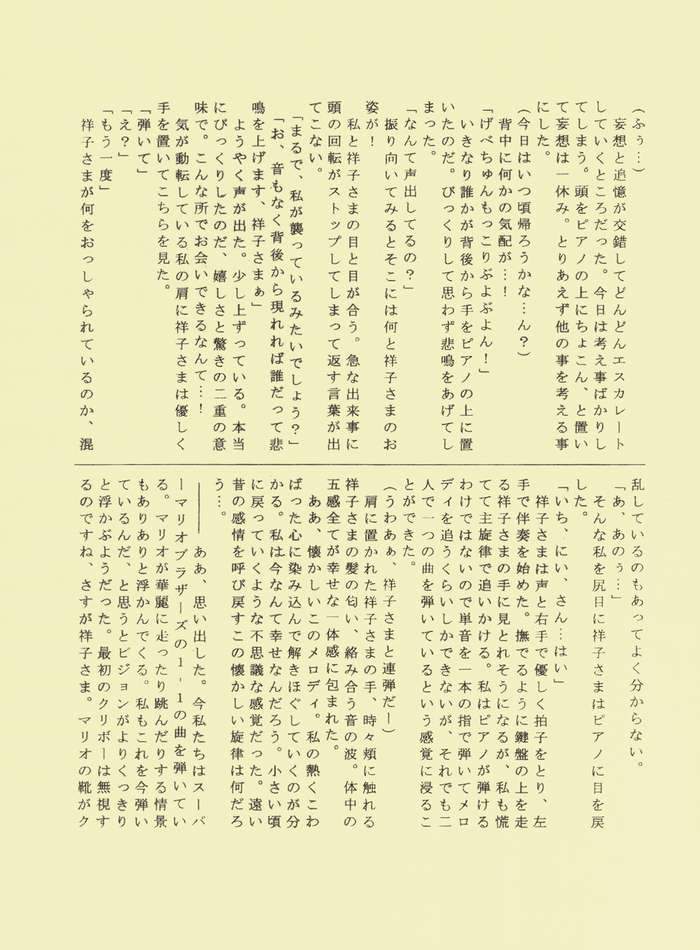 （ふぅ…）
　妄想と追憶が交錯してどんどんエスカレート
していくところだった。今日は考え事ばかりし
てしまう。頭をピアノの上にちょこん、と置い
て妄想は一休み。とりあえず他の事を考える事
にした。
（今日はいつ頃帰ろうかな…ん？）
　背中に何かの気配が…！
「げべちゅんもっこりぶよぶよん！」
　いきなり誰かが背後から手をピアノの上に置
いたのだ。びっくりして思わず悲鳴をあげてし
まった。
「なんて声出してるの？」
　振り向いてみるとそこには何と祥子さまのお
姿が！
　私と祥子さまの目と目が合う。急な出来事に
頭の回転がストップしてしまって返す言葉が出
てこない。
「まるで、私が襲っているみたいでしょう？」
「お、音もなく背後から現れれば誰だって悲
鳴を上げます、祥子さまぁ」
　ようやく声が出た。少し上ずっている。本当
にびっくりしたのだ、嬉しさと驚きの二重の意
味で。こんな所でお会いできるなんて…！
　気が動転している私の肩に祥子さまは優しく
手を置いてこちらを見た。
「弾いて」
「え？」
「もう一度」
　祥子さまが何をおっしゃられているのか、混
乱しているのもあってよく分からない。
「あ、あのぅ…」
　そんな私を尻目に祥子さまはピアノに目を戻
した。
「いち、にい、さん…はい」
　祥子さまは声と右手で優しく拍子をとり、左
手で伴奏を始めた。撫でるように鍵盤の上を走
る祥子さまの手に見とれそうになるが、私も慌
てて主旋律で追いかける。私はピアノが弾ける
わけではないので単音を一本の指で弾いてメロ
ディを追うくらいしかできないが、それでも二
人で一つの曲を弾いているという感覚に浸るこ
とができた。
（うわあぁ、祥子さまと連弾だー）
　肩に置かれた祥子さまの手、時々頬に触れる
祥子さまの髪の匂い、絡み合う音の波。体中の
五感全てが幸せな一体感に包まれた。
　ああ、懐かしいこのメロディ。私の熱くこわ
ばった心に染み込んで解きほぐしていくのが分
かる。私は今なんて幸せなんだろう。小さい頃
に戻っていくような不思議な感覚だった。遠い
昔の感情を呼び戻すこの懐かしい旋律は何だろ
う…。
―――　ああ、思い出した。今私たちはスーパ
ーマリオブラザーズの１‐１の曲を弾いてい
る。マリオが華麗に走ったり跳んだりする情景
もありありと浮かんでくる。私もこれを今弾い
ているんだ、と思うとビジョンがよりくっきり
と浮かぶようだった。最初のクリボーは無視す
るのですね、さすが祥子さま。マリオの靴がク